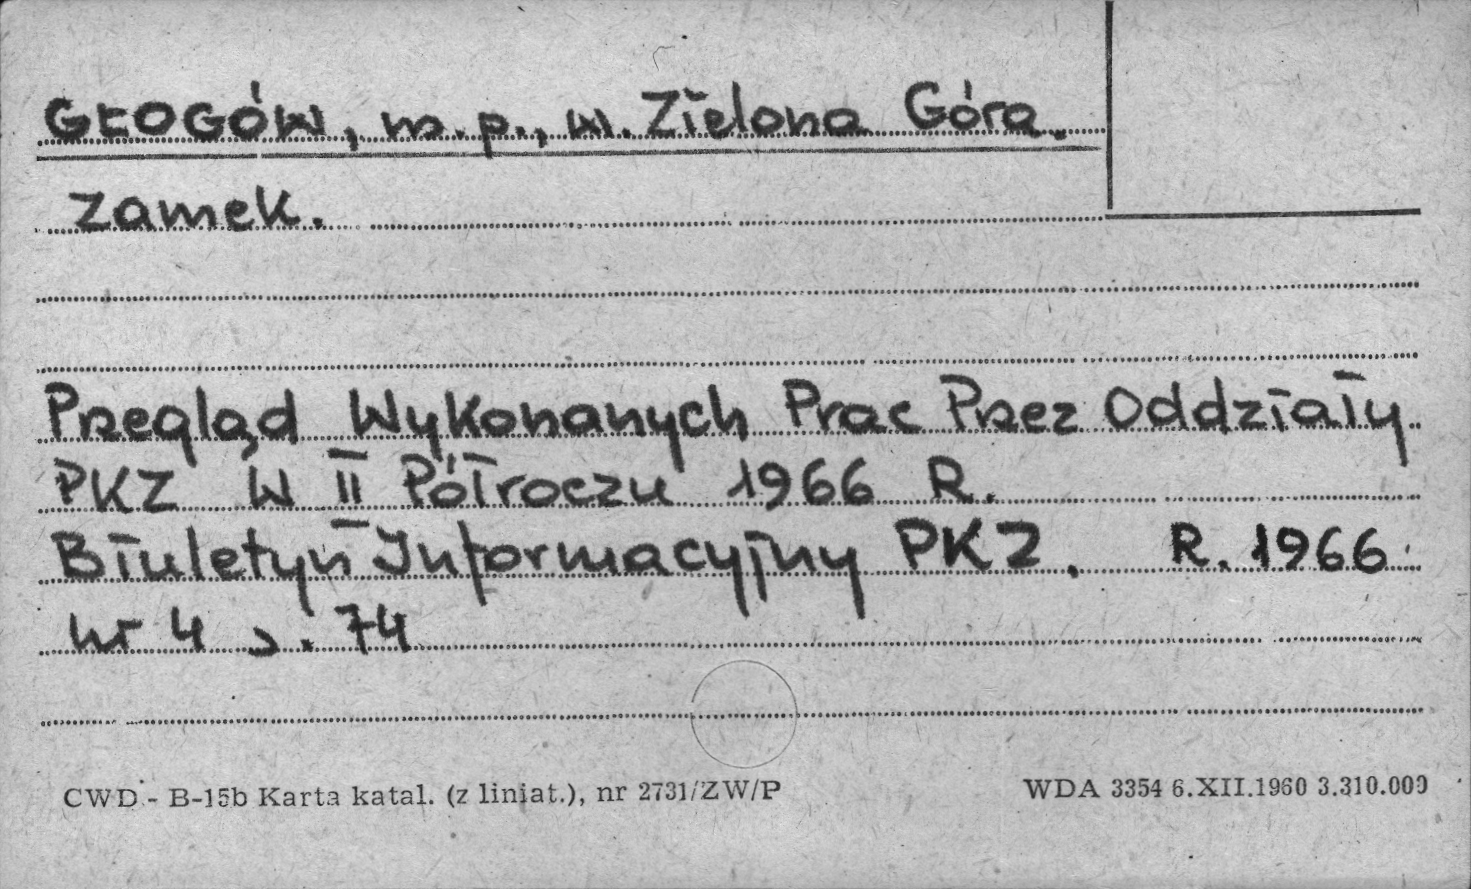 GŁOGÓW, m.p., w. Zielona Góra.
Zamek.
Przegląd Wykonanych Prac Przez Oddziały
PKZ W II Półroczu 1966 R.
Biuletyn Informacyjny PKZ. R. 1966
nr 4 s. 74
CWD - B-15b Karta katal. (z liniat.), nr 2731/ZW/P
WDA 3354 6.XII.1960 3.310.000